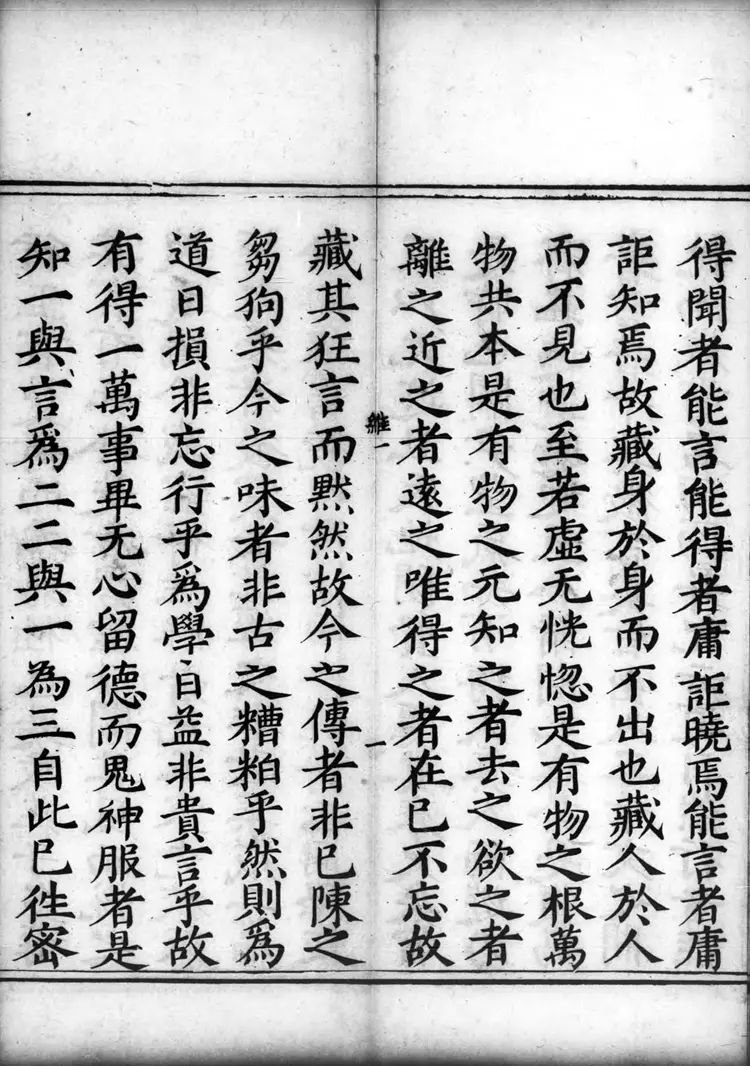 得聞者能言能得者庸詎曉焉能言者庸
詎知焉故藏身於身而不出也藏人於人
而不見也至若虛无恍惚是有物之根萬
物共本是有物之元知之者去之欲之者
離之近之者遠之唯得之者在已不忘故
離一
一
藏其狂言而默然故今之傳者非已陳之
芻狗乎今之味者非古之糟粕乎然則為
道日損非忘行乎爲學日益非貴言乎故
有得一萬事畢无心留德而鬼神服者是
知一與言爲二二與一為三自此已徃密